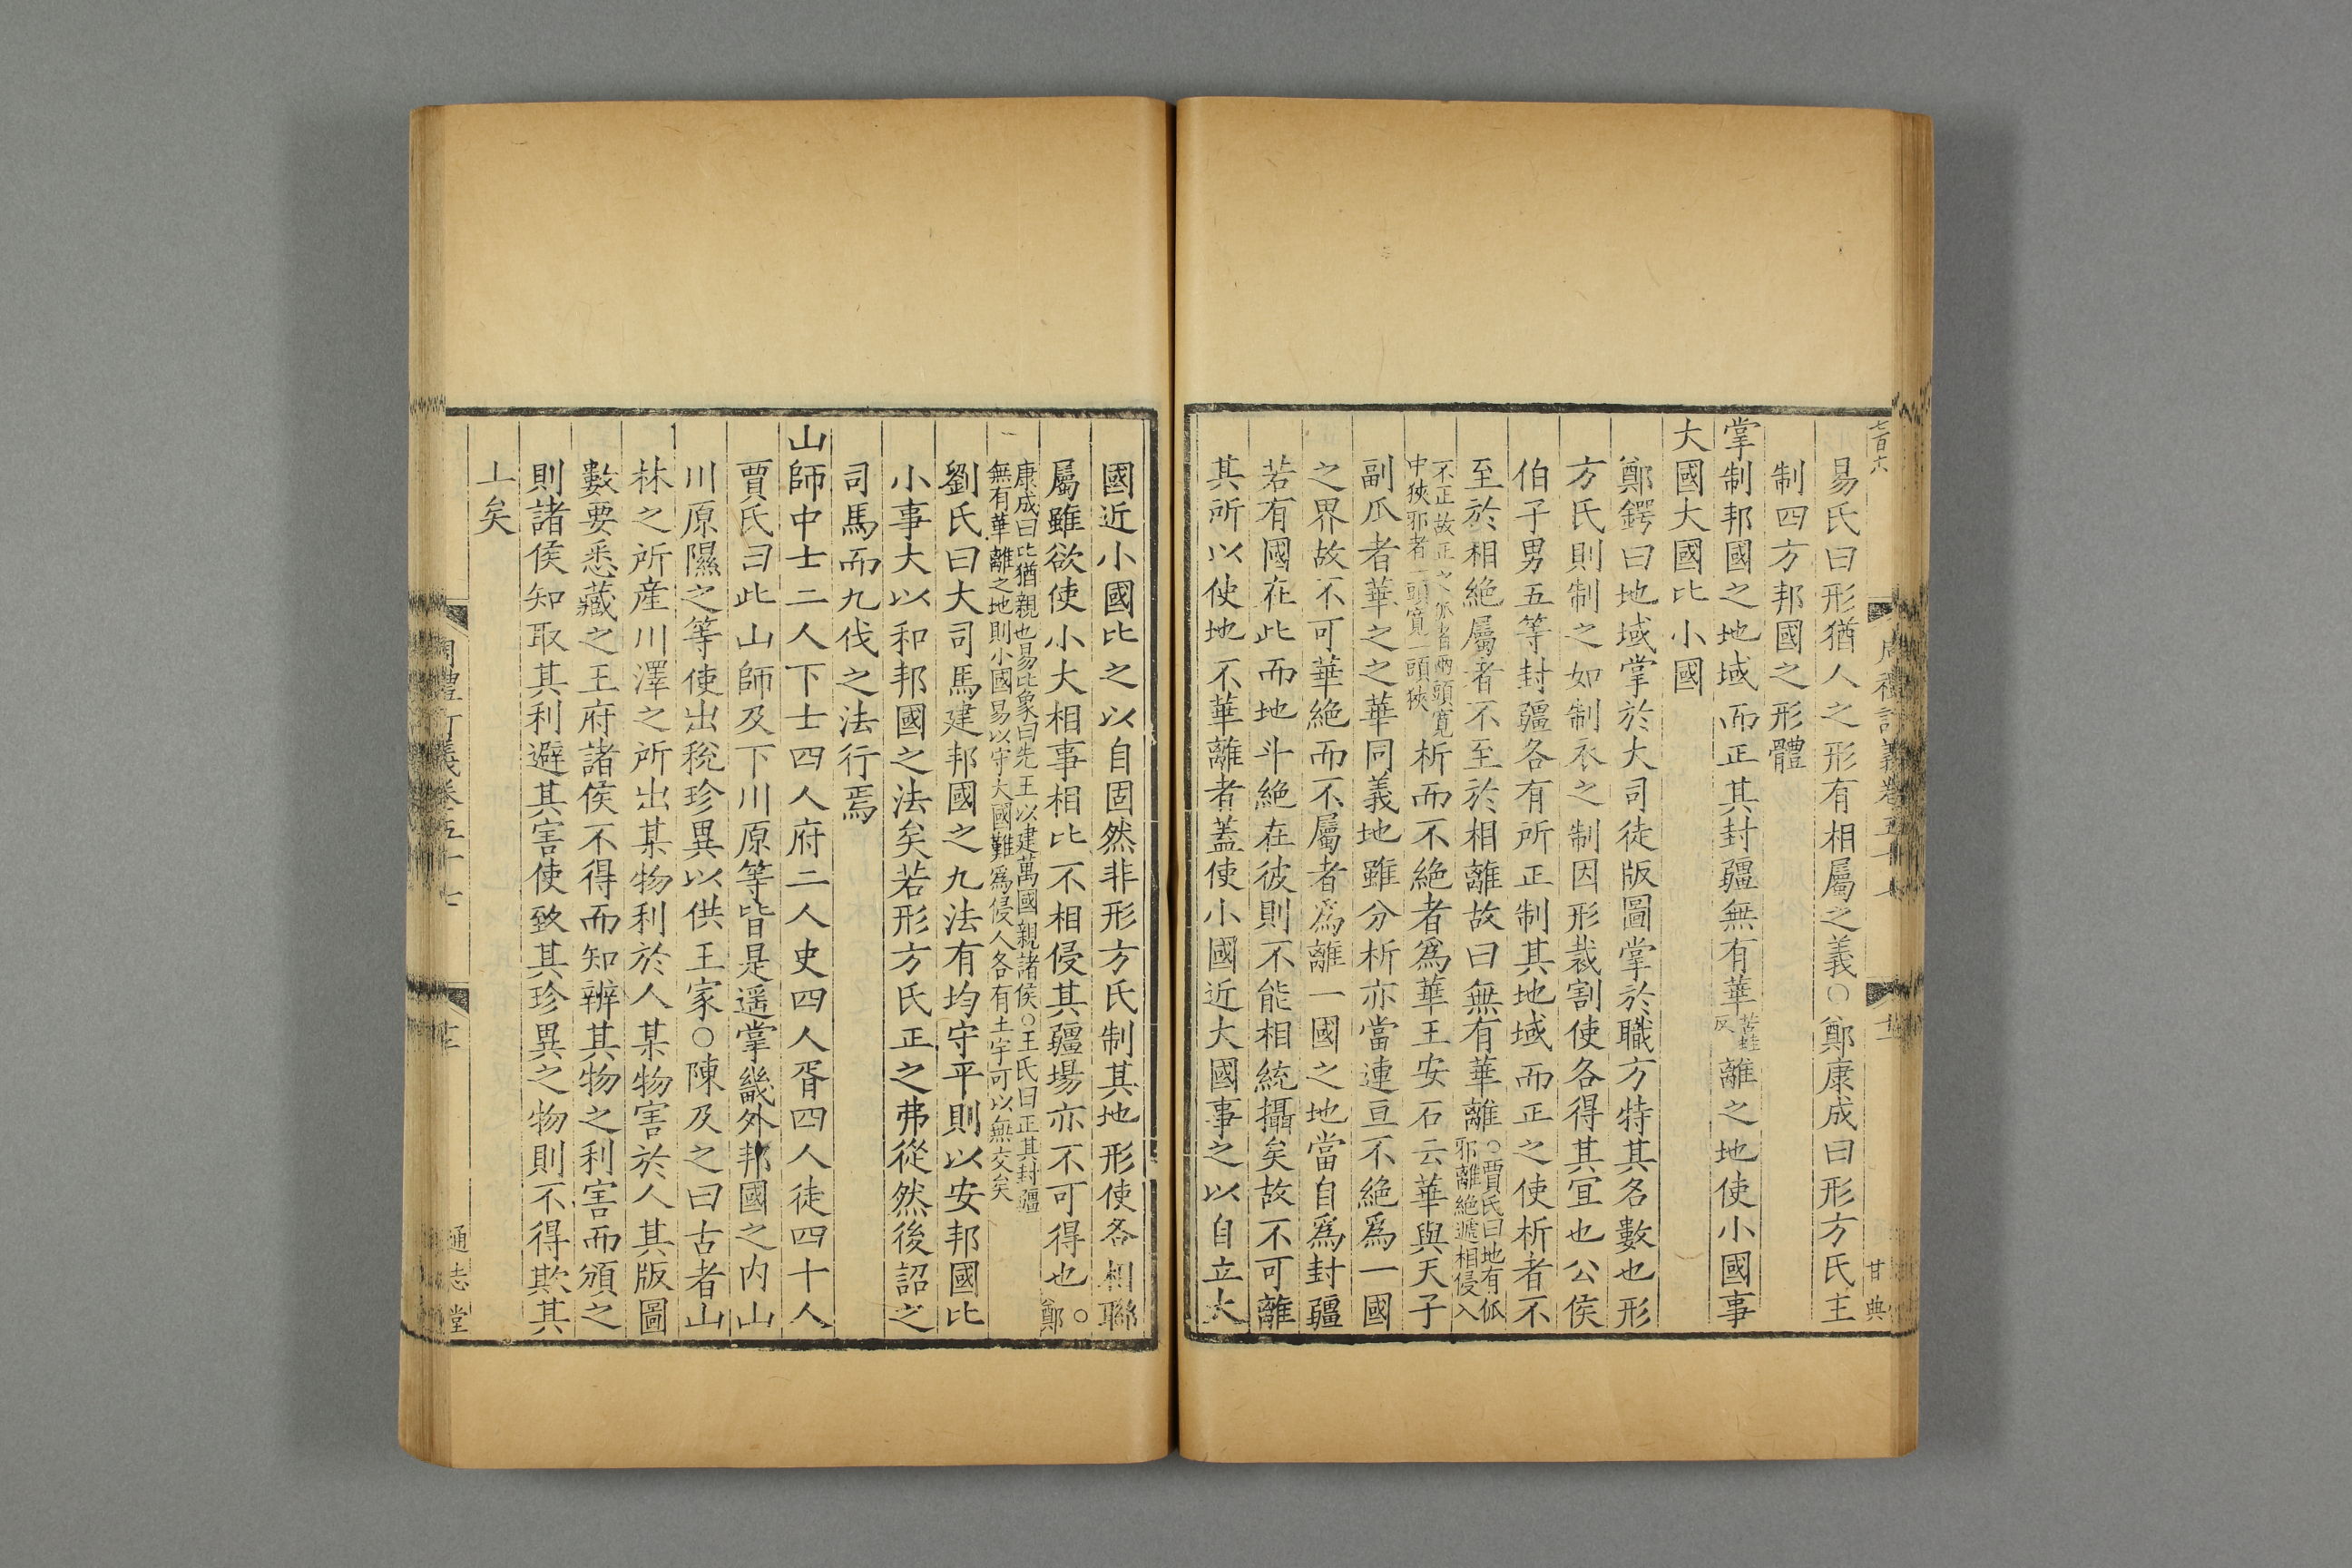 七百六
易氏曰形猶人之形有相屬之義○鄭康成曰形方氏主
制四方邦國之形體
掌制邦國之地域而正其封疆無有華苦蛙反離之地使小國事
大國大國比小國
鄭鍔曰地域掌於大司徒版圖掌於職方特其名數也形
方氏則制之如制衣之制因形裁割使各得其宜也公侯
伯子男五等封疆各有所正制其地域而正之使析者不
至於相絶屬者不至於相離故曰無有華離○賈氏曰地有㐌邪離絶遞相侵入
不正故正之㐌者兩頭寬中狹邪者一頭寬一頭狹析而不絶者爲華王安石云華與天子
副瓜者華之之華同義地雖分析亦當連亘不絶爲一國
之界故不可華絶而不屬者爲離一國之地當自爲封疆
若有國在此而地斗絶在彼則不能相統攝矣故不可離
其所以使地不華離者蓋使小國近大國事之以自立大
周禮訂義卷五十七
甘典
國近小國比之以自固然非形方氏制其地形使各相聯
屬雖欲使小大相事相比不相侵其疆場亦不可得也○鄭
康成曰比猶親也易比象曰先王以建萬國親諸侯○王氏曰正其封疆
無有華離之地則小國易以守大國難爲侵人各有土宇可以無交矣
劉氏曰大司馬建邦國之九法有均守平則以安邦國比
小事大以和邦國之法矣若形方氏正之弗從然後詔之
司馬而九伐之法行焉
山師中士二人下士四人府二人史四人胥四人徒四十人
賈氏曰此山師及下川原等皆是遥掌畿外邦國之内山
川原隰之等使出稅珍異以供王家○陳及之曰古者山
林之所産川澤之所出某物利於人某物害於人其版圖
數要悉藏之王府諸侯不得而知辨其物之利害而頒之
則諸侯知取其利避其害使致其珍異之物則不得欺其
上矣
周禮訂義卷五十七
通志堂